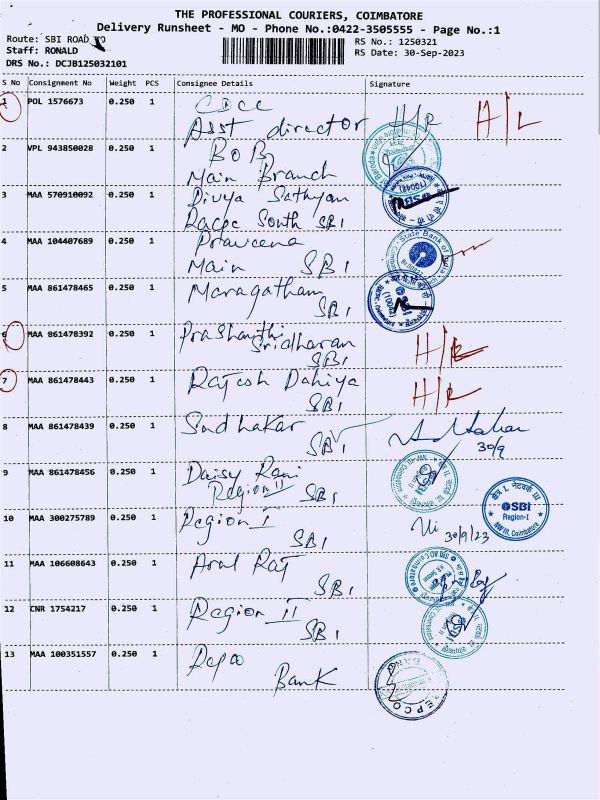 THE PROFESSIONAL COURIERS, COIMBATORE
Delivery Runsheet - MO - Phone No.:0422-3505555 - Page No.:1
Route: SBI ROAD MO
RS No.: 1250321
Staff: RONALD
RS Date: 30-Sep-2023
DRS No.: DCJB125032101
S No Consignment No Weight PCS Consignee Details Signature
1 POL 1576673 0.250 1 CDCC
Asst director H/R H/L
2 VPL 943850028 0.250 1 BOB
Main Branch
3 MAA 570910092 0.250 1 Divya Sathyan
Racpc South SBI
4 MAA 104407689 0.250 1 Praveena
Main SBI
State Bank of India
5 MAA 861478465 0.250 1 Maragatham
SBI
6 MAA 861478392 0.250 1 Prashanthi
Sridharan
SBI H/R
7 MAA 861478443 0.250 1 Rajesh Dahiya
SBI H/R
8 MAA 861478439 0.250 1 Sudhakar
SBI
30/9
9 MAA 861478456 0.250 1 Daisy Rani
Region II SBI
10 MAA 300275789 0.250 1 Region I
SBI
30/9/23
SBI
Region-I
11 MAA 106608643 0.250 1 Arul Raj
SBI
12 CNR 1754217 0.250 1 Region II
SBI
13 MAA 100351557 0.250 1 Repco
Bank
REPCO